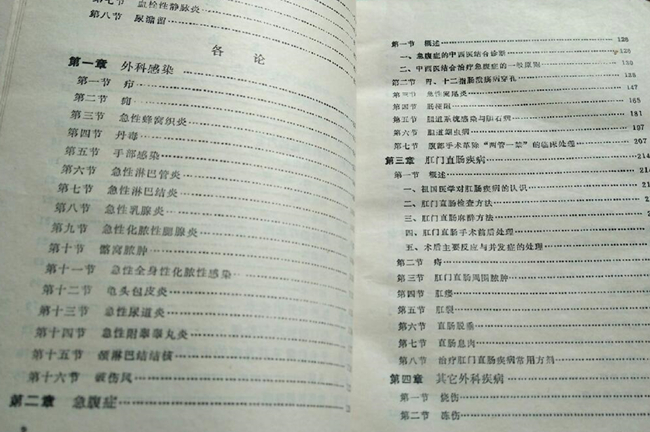 第七节 血栓性静脉炎
第八节 尿潴留
各论
第一章 外科感染
第一节 疖
第二节 痈
第三节 急性蜂窝织炎
第四节 丹毒
第五节 手部感染
第六节 急性淋巴管炎
第七节 急性淋巴结炎
第八节 急性乳腺炎
第九节 急性化脓性腮腺炎
第十节 髂窝脓肿
第十一节 急性全身性化脓性感染
第十二节 龟头包皮炎
第十三节 急性尿道炎
第十四节 急性附睾睾丸炎
第十五节 颈淋巴结结核
第十六节 破伤风
第二章 急腹症
第一节 概述 126
一、急腹症的中西医结合诊断 126
二、中西医结合治疗急腹症的一般原则
第二节 胃、十二指肠溃疡病穿孔
第三节 急性阑尾炎 147
第四节 肠梗阻 165
第五节 胆道系统感染与胆石病 181
第六节 胆道蛔虫病 197
第七节 腹部手术革除“两管一禁”的临床处理 207
第三章 肛门直肠疾病 214
第一节 概述 214
一、祖国医学对肛肠疾病的认识 214
二、肛门直肠检查方法
三、肛门直肠麻醉方法
四、肛门直肠手术前后处理
五、术后主要反应与并发症的处理
第二节 痔
第三节 肛门直肠周围脓肿
第四节 肛瘘
第五节 肛裂
第六节 直肠脱垂
第七节 直肠息肉
第八节 治疗肛门直肠疾病常用方剂
第四章 其它外科疾病
第一节 烧伤
第二节 冻伤